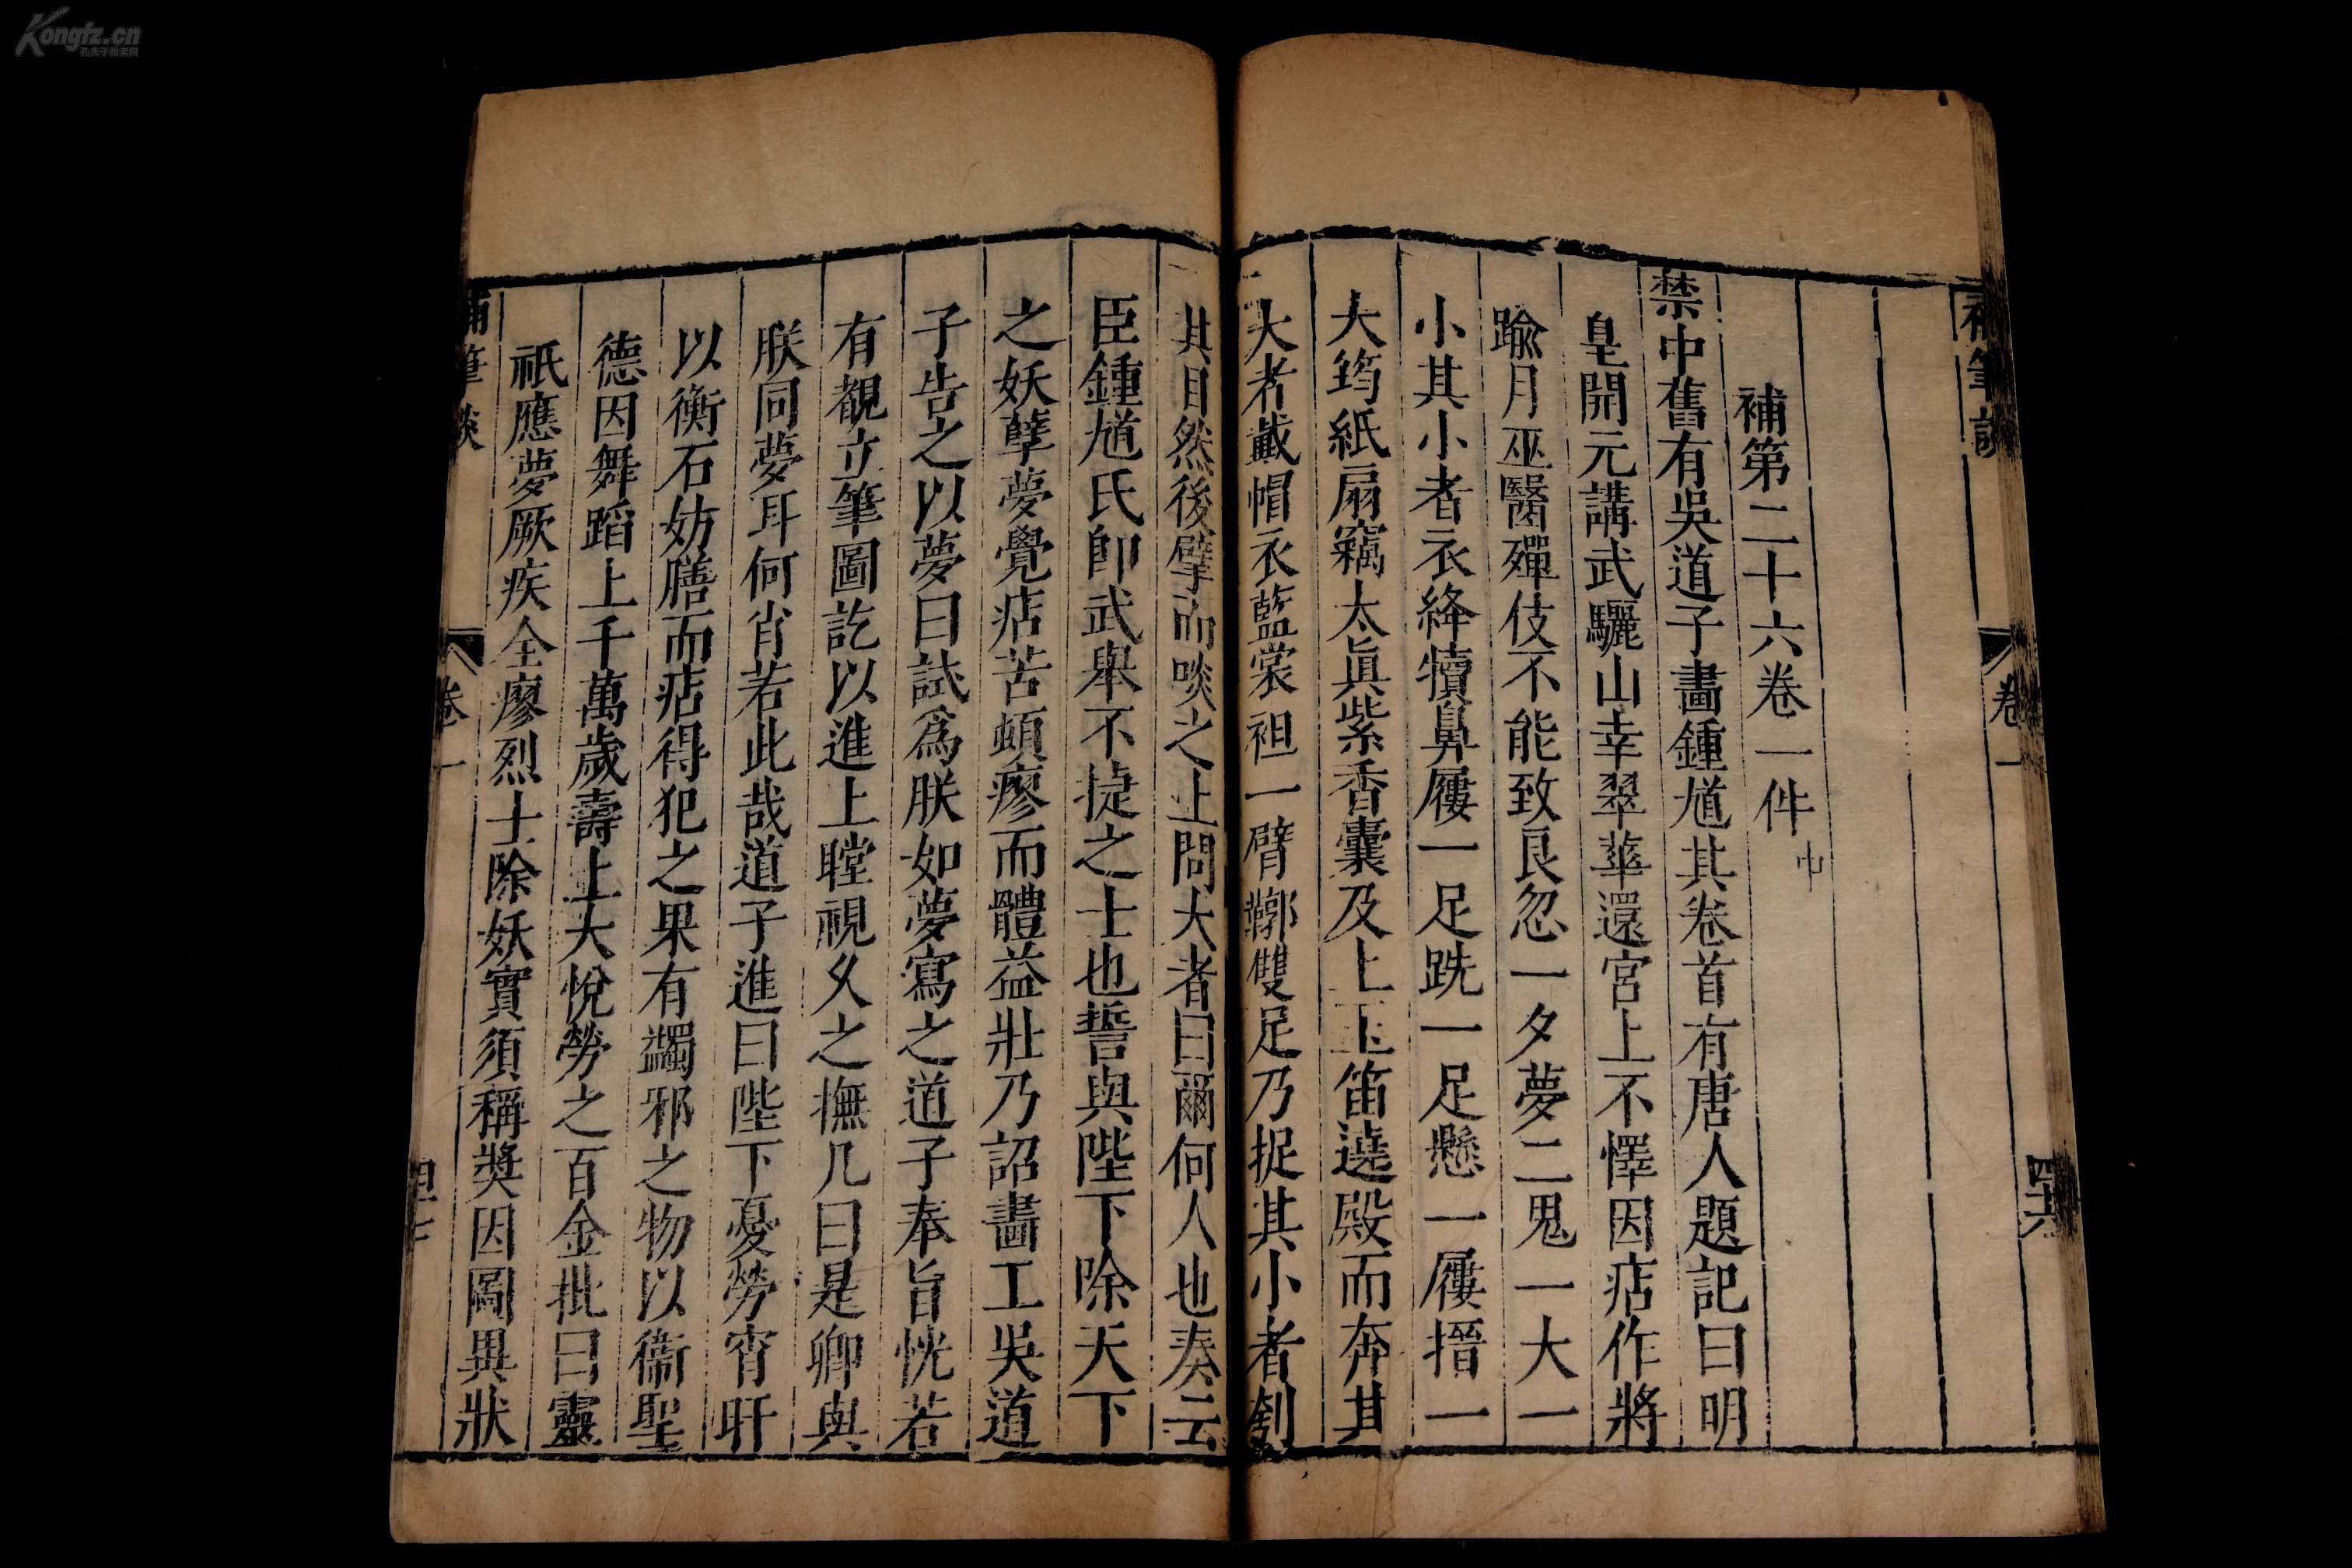 Kongfz.cn
補第二十六卷一件中
禁中舊有吳道子畫鍾馗其卷首有唐人題記曰明
皇開元講武驪山幸翠華還宮上不懌因痁作將
踰月巫醫殫伎不能致良忽一夕夢二鬼一大一
小其小者衣絳犢鼻屨一足跣一足懸一屨搢一
大筠紙扇竊太眞紫香囊及上玉笛遶殿而奔其
大者戴帽衣藍裳袒一臂鞹雙足乃捉其小者刳
其目然後擘而啖之上問大者曰爾何人也奏云
臣鍾馗氏卽武舉不捷之士也誓與陛下除天下
之妖孽夢覺痁苦頓瘳而體益壯乃詔畫工吳道
子告之以夢曰試爲朕如夢寫之道子奉旨恍若
有覩立筆圖訖以進上瞠視久之撫几曰是卿與
朕同夢耳何肖若此哉道子進曰陛下憂勞宵旰
以衡石妨膳而痁得犯之果有蠲邪之物以衞聖
德因舞蹈上千萬歲壽上大悅勞之百金批曰靈
祇應夢厥疾全瘳烈士除妖實須稱奬因圖異狀
補筆談 卷一 四十六
補筆談 卷一